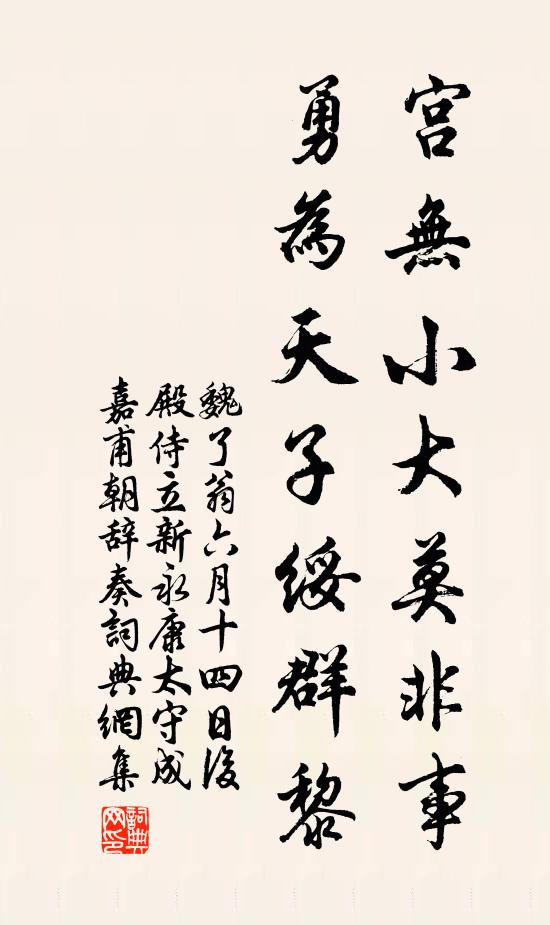 宫無小大莫非事
勇為天子綏群黎
魏了翁六月十四日後
殿侍立新永康太守成
嘉甫朝辞奏詞典網集
詞典
网印